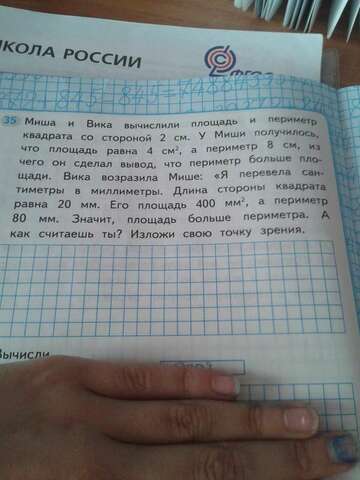 КОЛА РОССИИ
ФГОС
35 Миша и Вика вычислили площадь и периметр
квадрата со стороной 2 см. У Миши получилось,
что площадь равна 4 см², а периметр 8 см, из
чего он сделал вывод, что периметр больше пло-
щади. Вика возразила Мише: «Я перевела сан-
тиметры в миллиметры. Длина стороны квадрата
равна 20 мм. Его площадь 400 мм², а периметр
80 мм. Значит, площадь больше периметра. А
как считаешь ты? Изложи свою точку зрения.
Вычисли